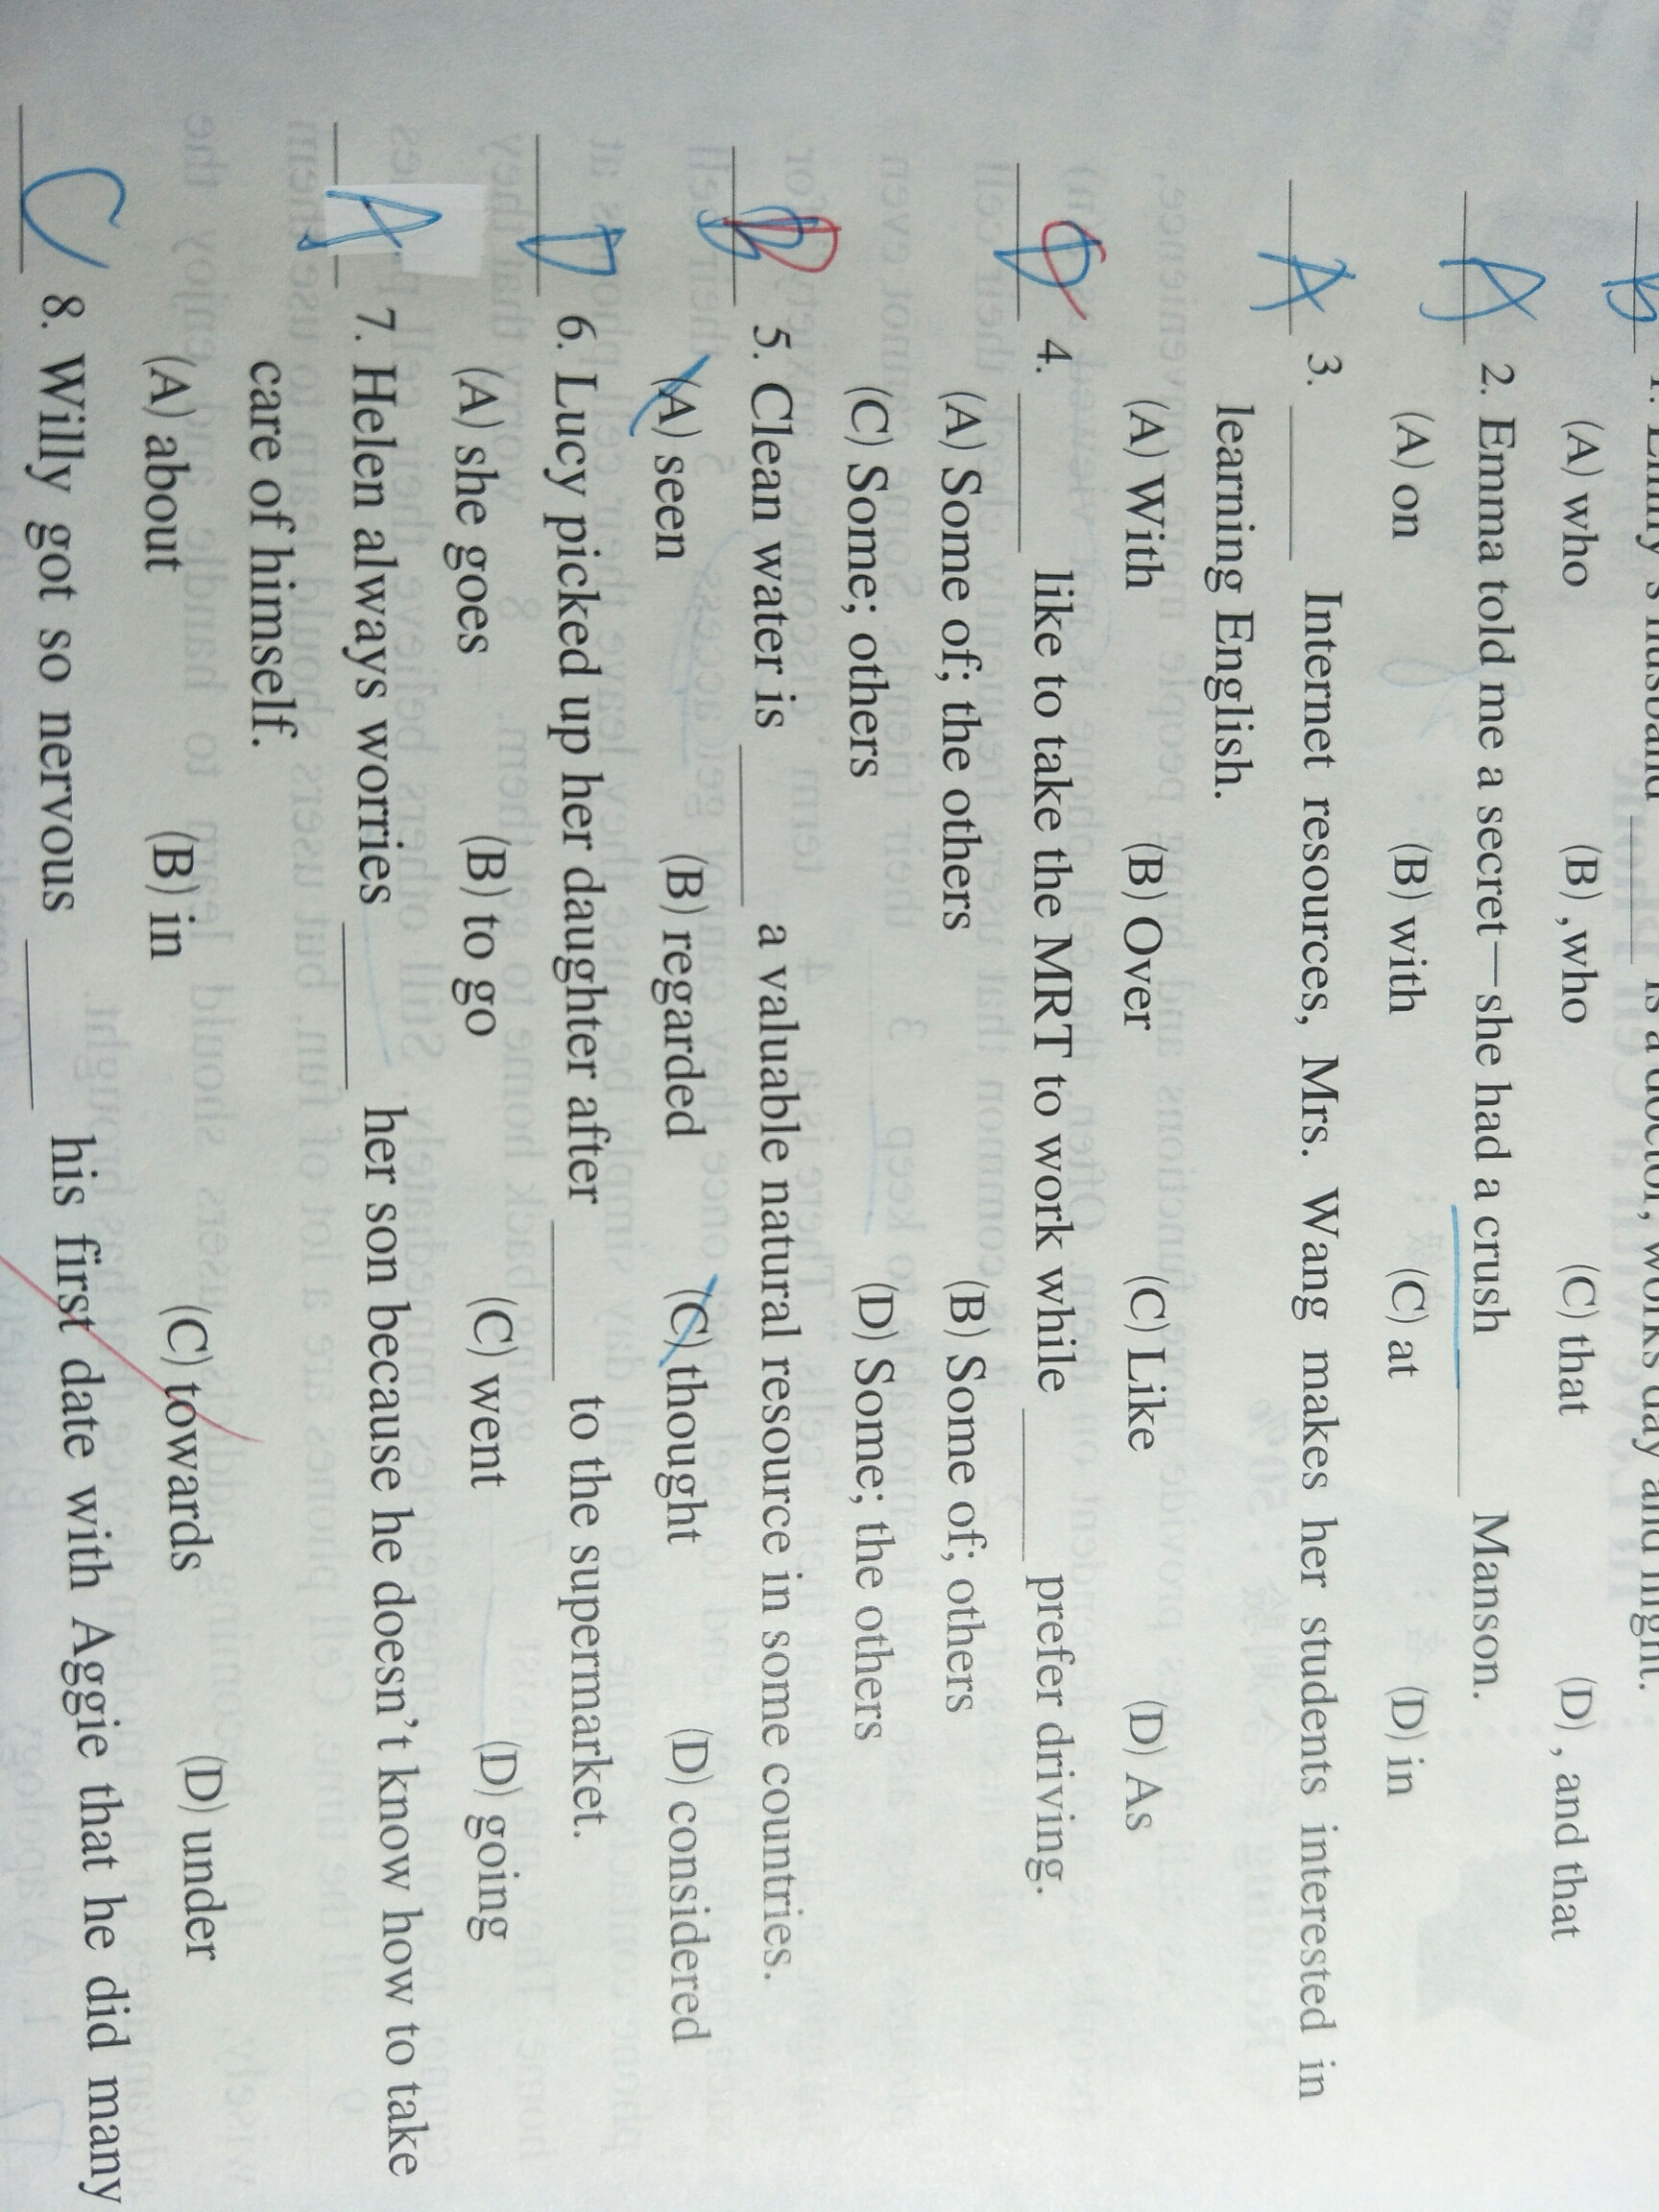 B 1. Emily's husband ______ is a doctor, works day and night.
(A) who (B) , who (C) that (D) , and that
A 2. Emma told me a secret—she had a crush ______ Manson.
(A) on (B) with (C) at (D) in
A 3. ______ Internet resources, Mrs. Wang makes her students interested in
learning English.
(A) With (B) Over (C) Like (D) As
4. ______ like to take the MRT to work while ______ prefer driving.
(A) Some of; the others (B) Some of; others
(C) Some; others (D) Some; the others
5. Clean water is ______ a valuable natural resource in some countries.
(A) seen (B) regarded (C) thought (D) considered
D 6. Lucy picked up her daughter after ______ to the supermarket.
(A) she goes (B) to go (C) went (D) going
A 7. Helen always worries ______ her son because he doesn't know how to take
care of himself.
(A) about (B) in (C) towards (D) under
C 8. Willy got so nervous ______ his first date with Aggie that he did many